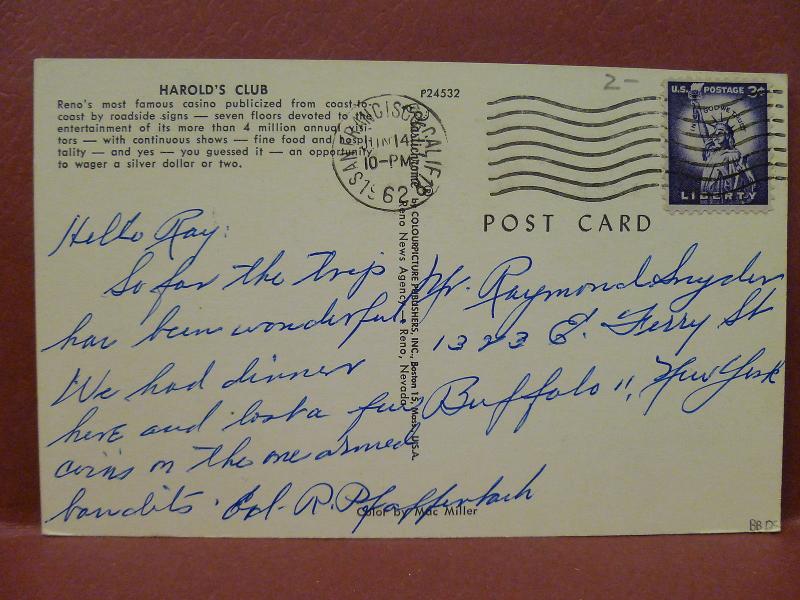 HAROLD'S CLUB
Reno's most famous casino publicized from coast-to-
coast by roadside signs — seven floors devoted to the
entertainment of its more than 4 million annual visi-
tors — with continuous shows — fine food and hospi-
tality — and yes — you guessed it — an opportunity
to wager a silver dollar or two.
P24532
SAN FRANCISCO, CALIF
JUN 14
10-PM
62
2-
U.S. POSTAGE 3¢
IN GOD WE TRUST
LIBERTY
POST CARD
Plastichrome by COLOURPICTURE PUBLISHERS, INC., Boston 15, Mass., U.S.A.
Reno News Agency — Reno, Nevada
Hello Ray:
So far the trip
has been wonderful.
We had dinner
here and lost a few
coins on the one armed
bandits. Col. R. Pfaffenbach
Mr. Raymond Snyder
1323 E. Ferry St
Buffalo 11, New York
Color by Mac Miller